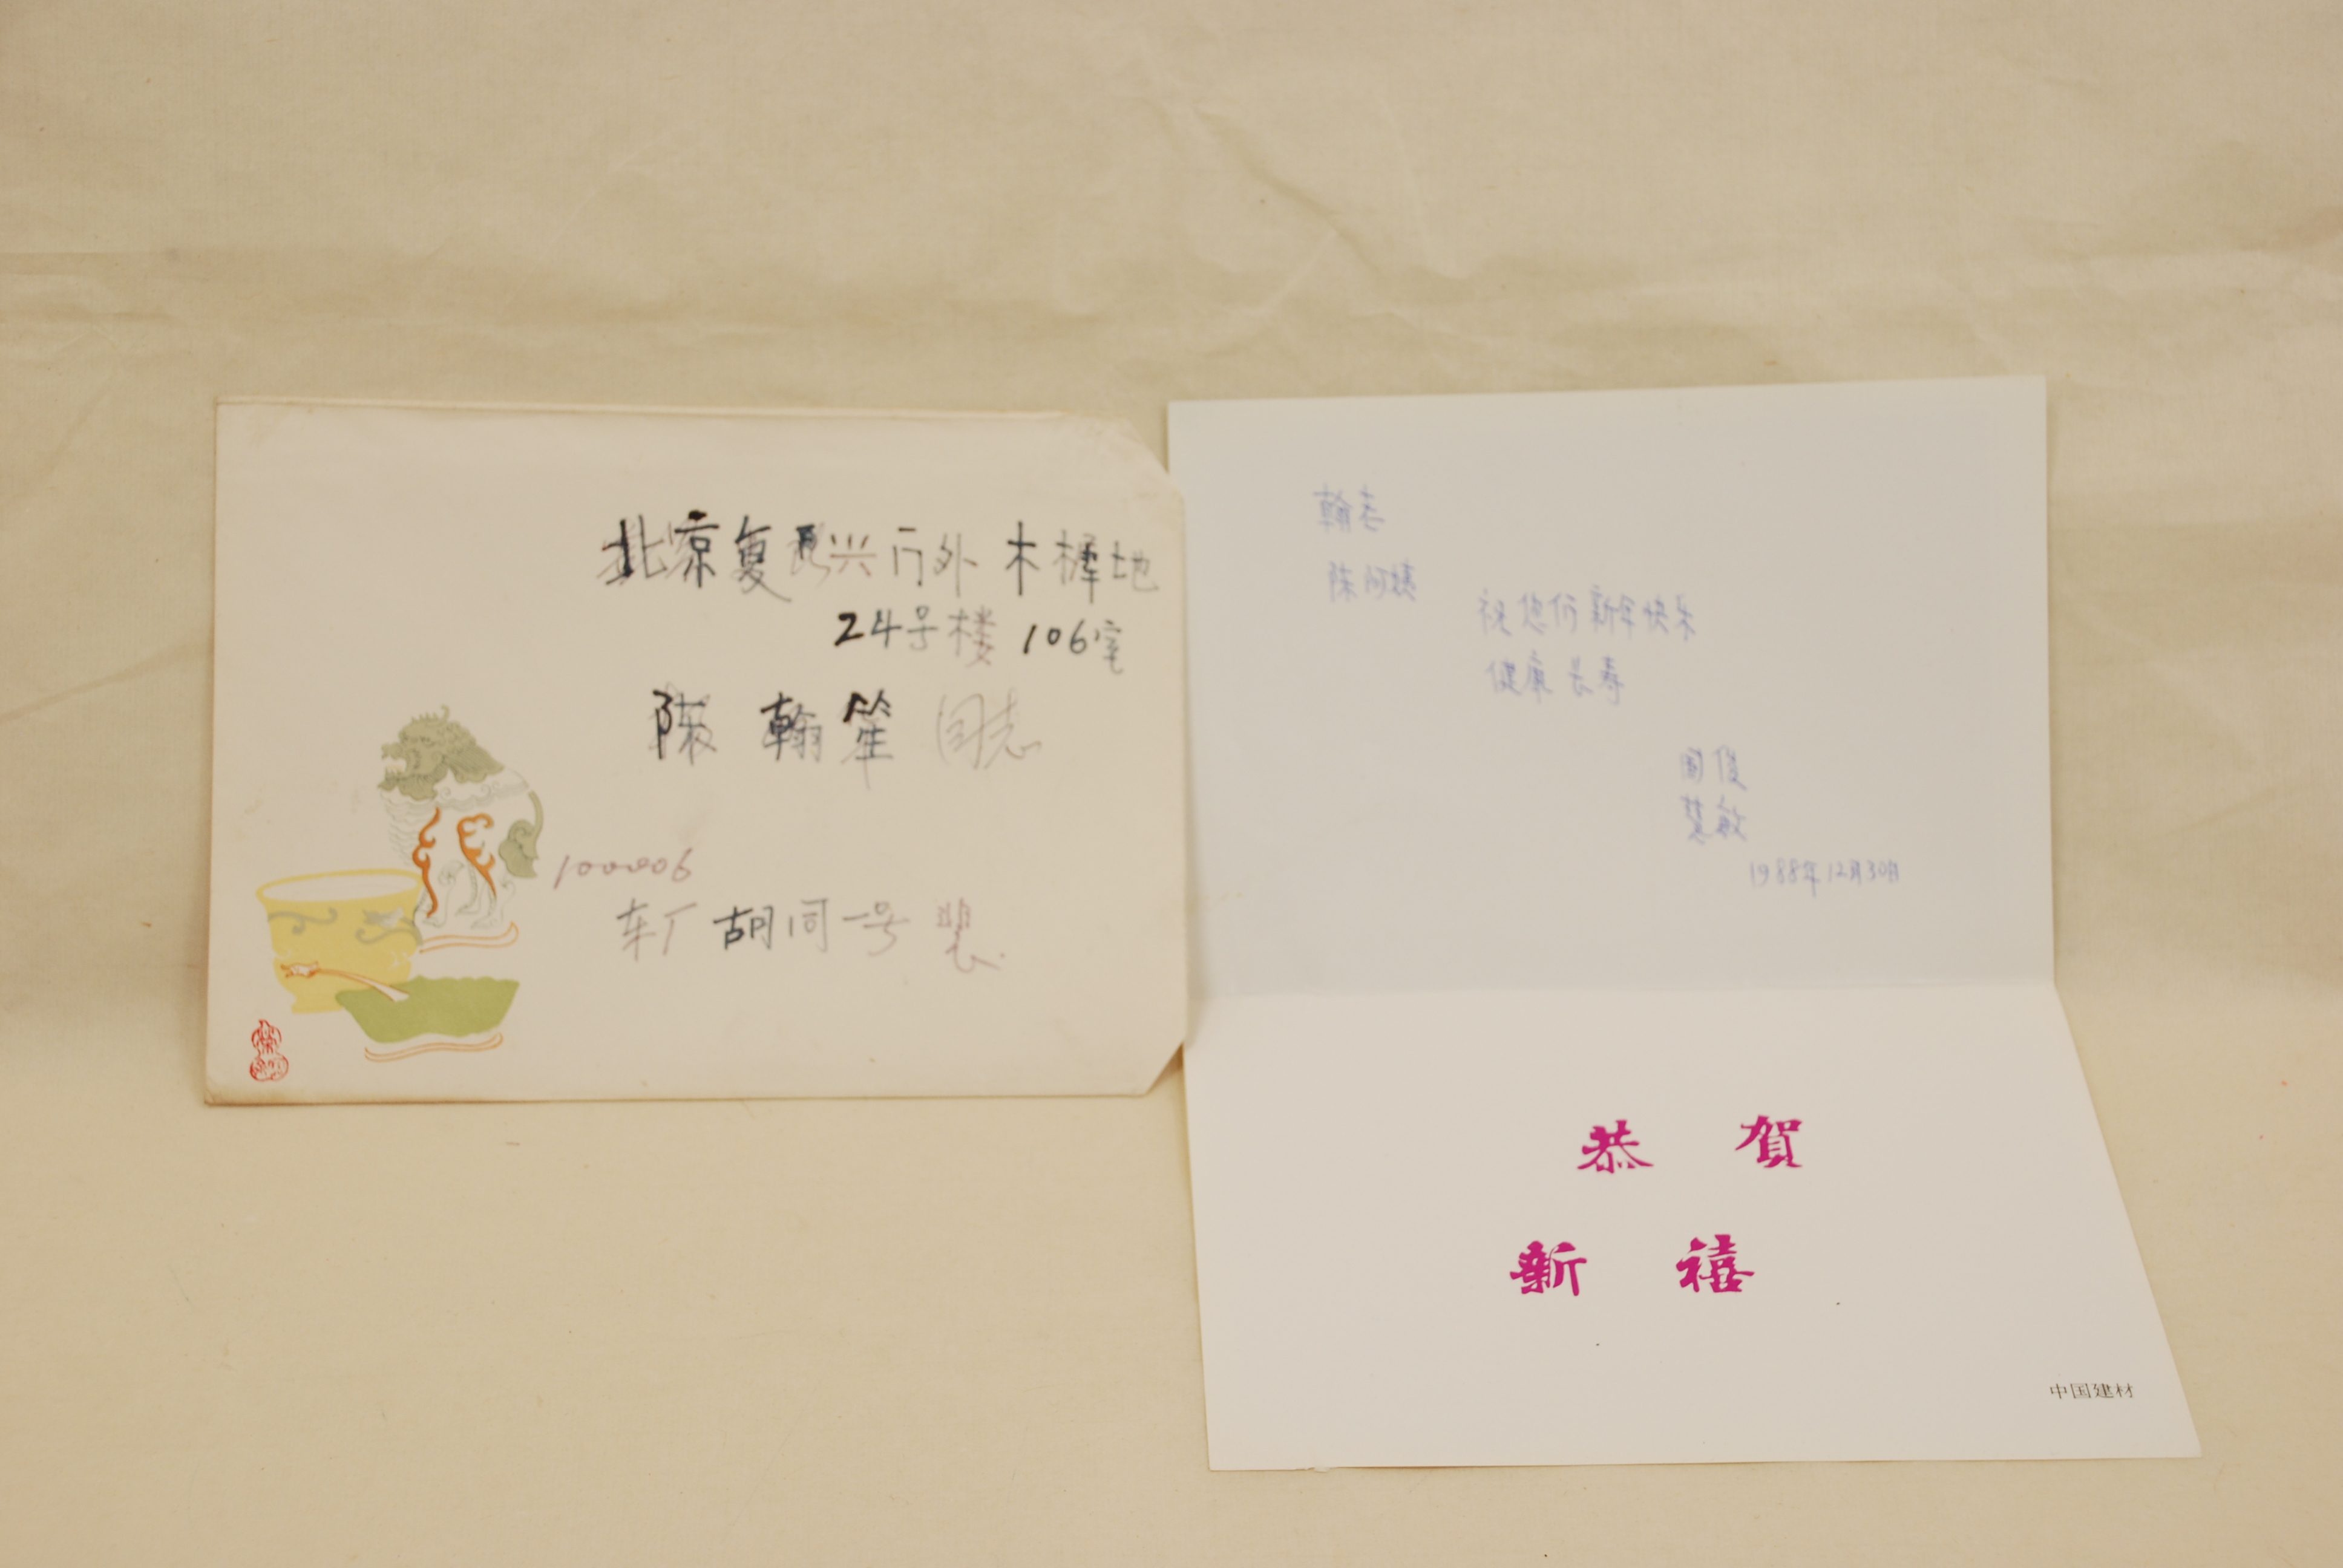 北京复兴门外木樨地
24号楼 106室
陈翰笙 同志
100006
车厂胡同一号 裴
翰老
陈阿姨
祝您们新年快乐
健康长寿
国俊
慧敏
1988年12月30日
恭賀
新禧
中国建材